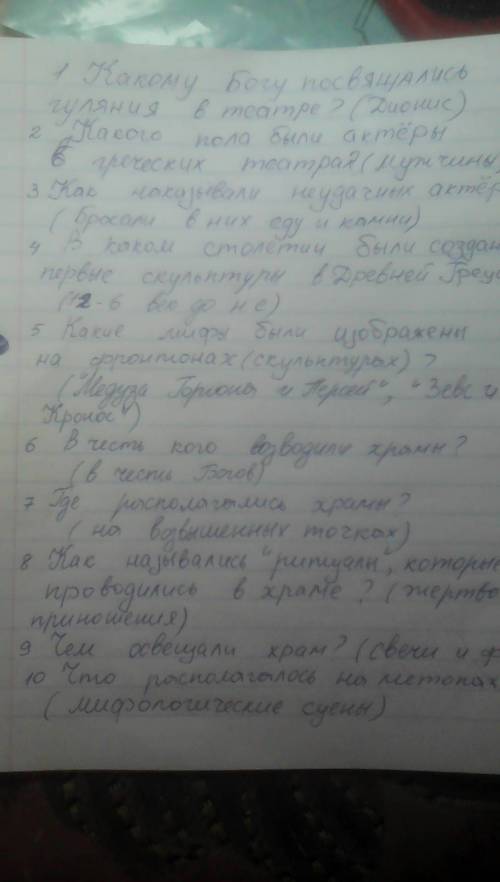 1 Какому Богу посвящались
гуляния в театре? (Дионис)
2 Какого пола были актёры
в греческих театрах? (мужчины)
3 Как наказывали неудачных актёр
(Бросали в них еду и камни)
4 В каком столетии были создан
первые скульптуры в Древней Греци
(12-6 век до н е)
5 Какие мифы были изображены
на фронтонах (скульптурах)?
("Медуза Горгона и Персей", "Зевс и
Кронос")
6 В честь кого возводили храмы?
(в честь Богов)
7 Где располагались храмы?
(на возвышенных точках)
8 Как назывались "ритуалы", которые
проводились в храме? (жертво
приношения)
9 Чем освещали храм? (свечи и ф
10 Что располагалось на метопах
(мифологические сцены)